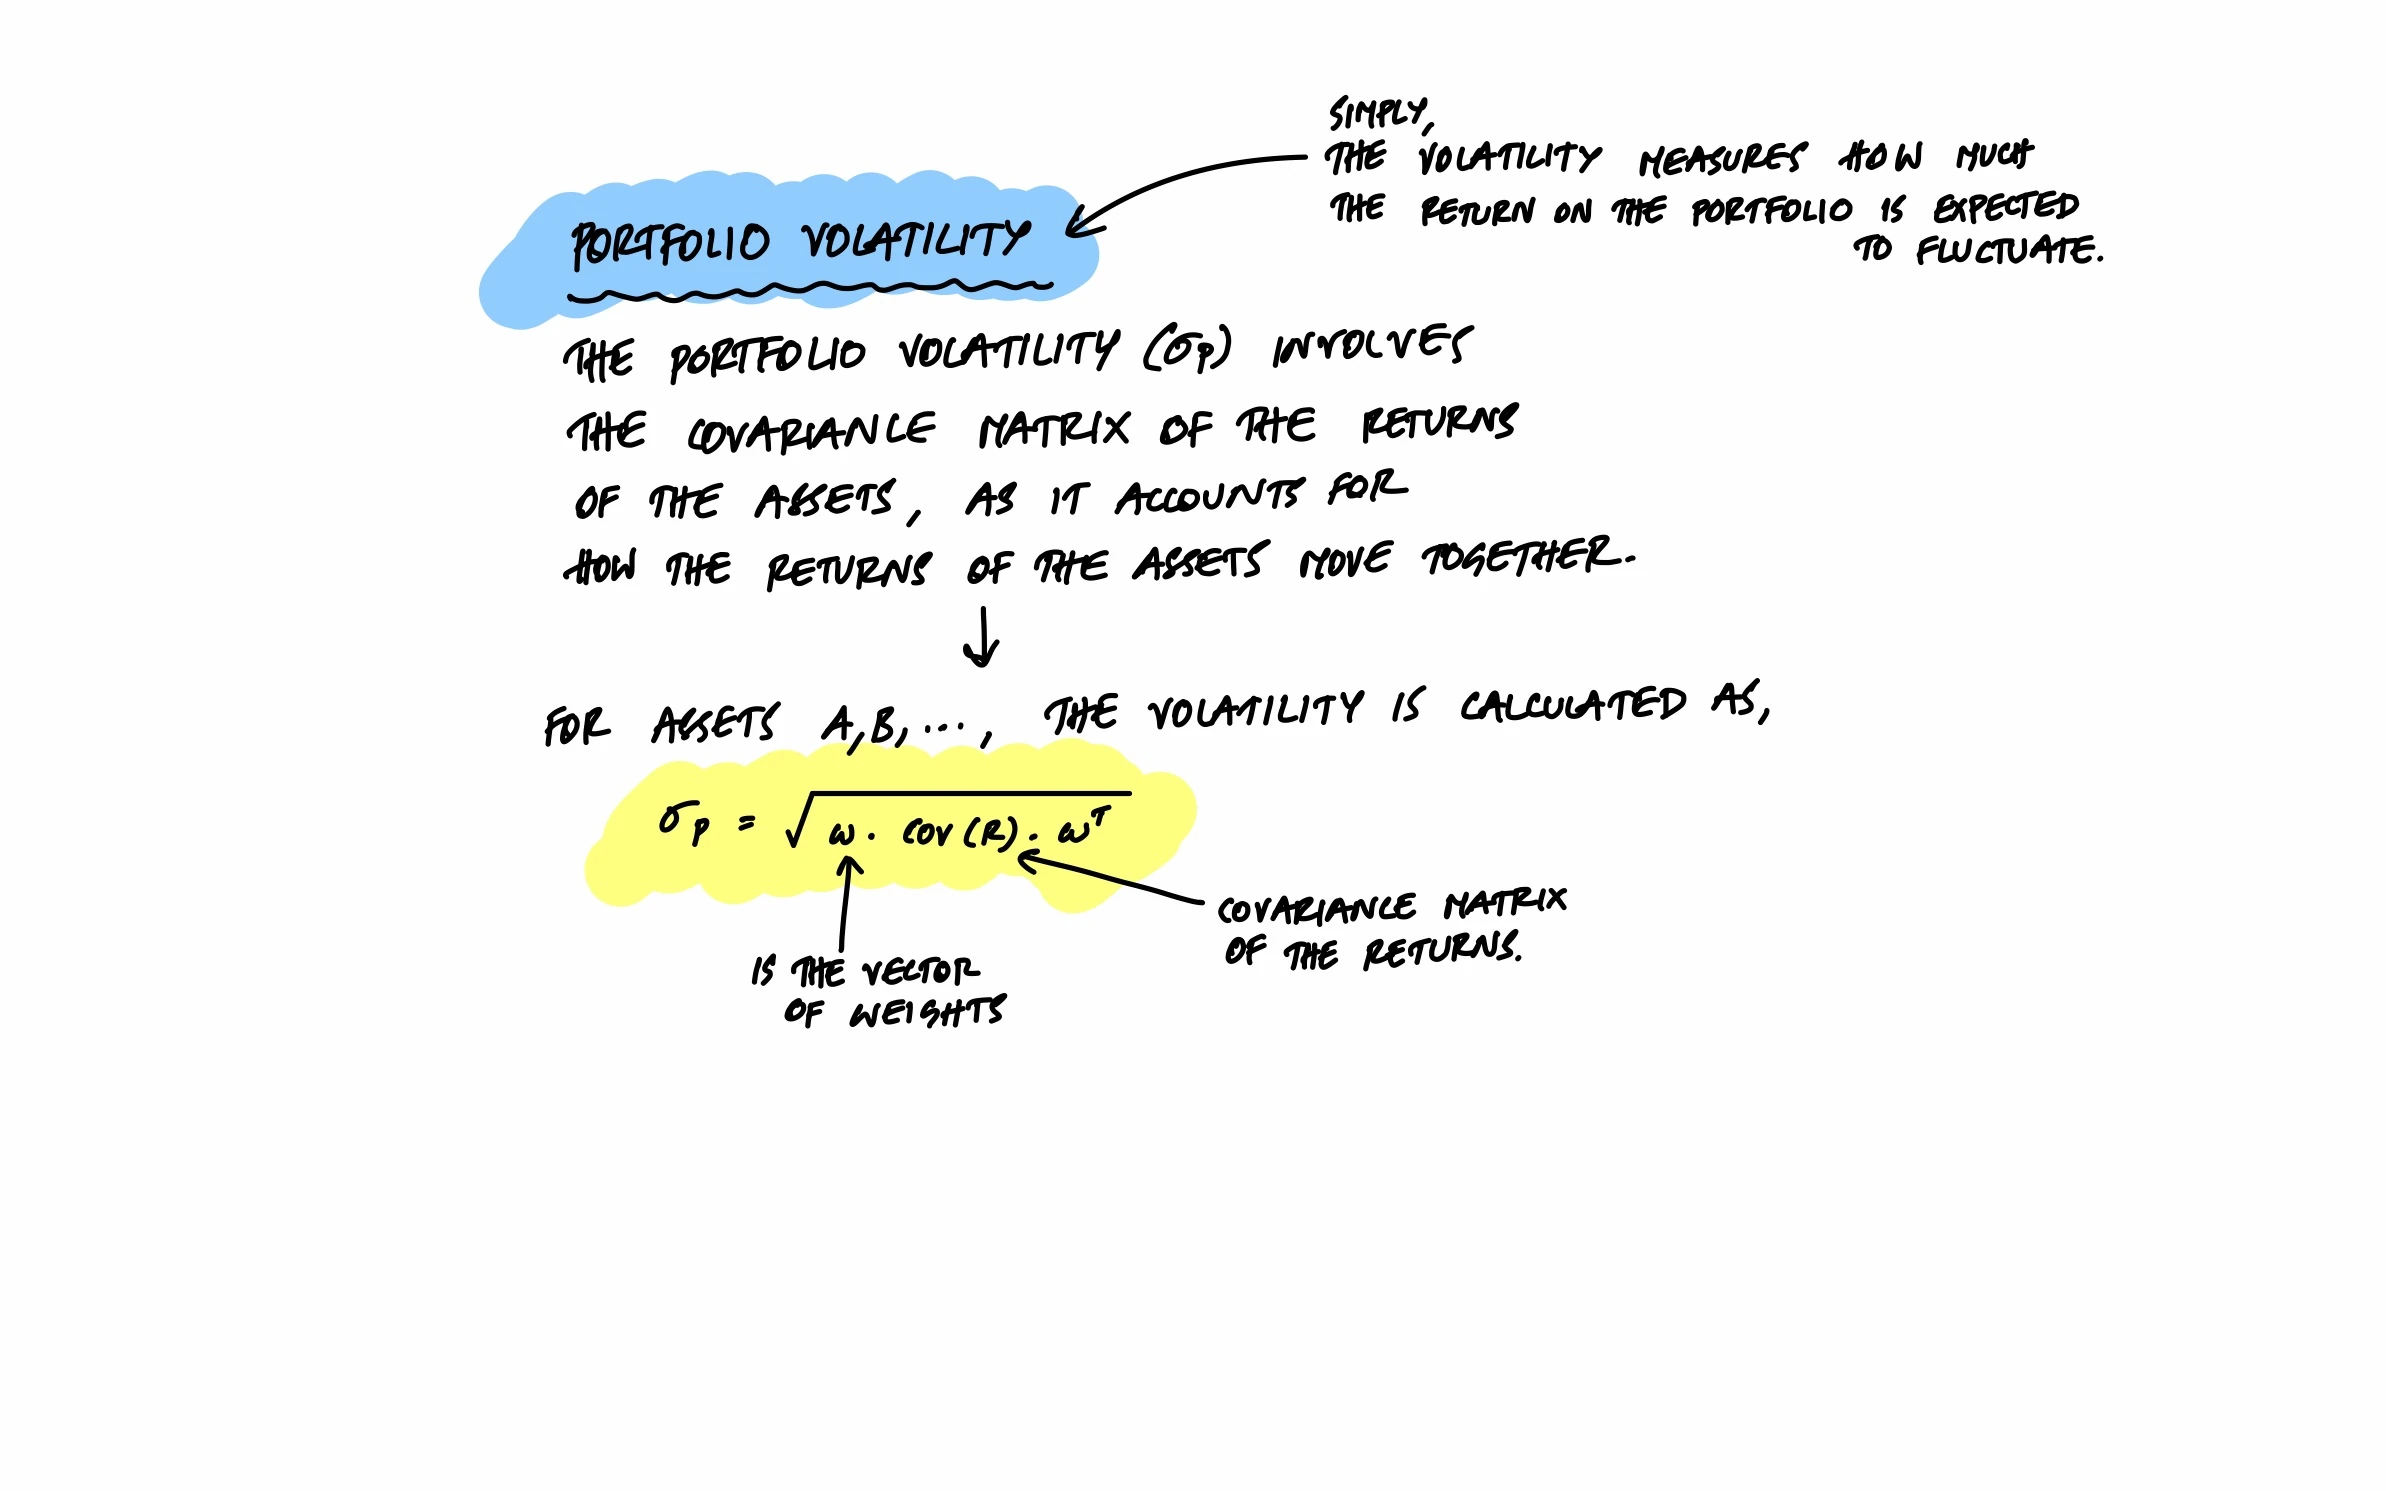 SIMPLY,
THE VOLATILITY MEASURES HOW MUCH
THE RETURN ON THE PORTFOLIO IS EXPECTED
TO FLUCTUATE.
PORTFOLIO VOLATILITY
THE PORTFOLIO VOLATILITY (σp) INVOLVES
THE COVARIANCE MATRIX OF THE RETURNS
OF THE ASSETS, AS IT ACCOUNTS FOR
HOW THE RETURNS OF THE ASSETS MOVE TOGETHER.
↓
FOR ASSETS A,B,..., THE VOLATILITY IS CALCULATED AS,
σp = √(ω . COV(R) . ωᵀ)
IS THE VECTOR
OF WEIGHTS
COVARIANCE MATRIX
OF THE RETURNS.